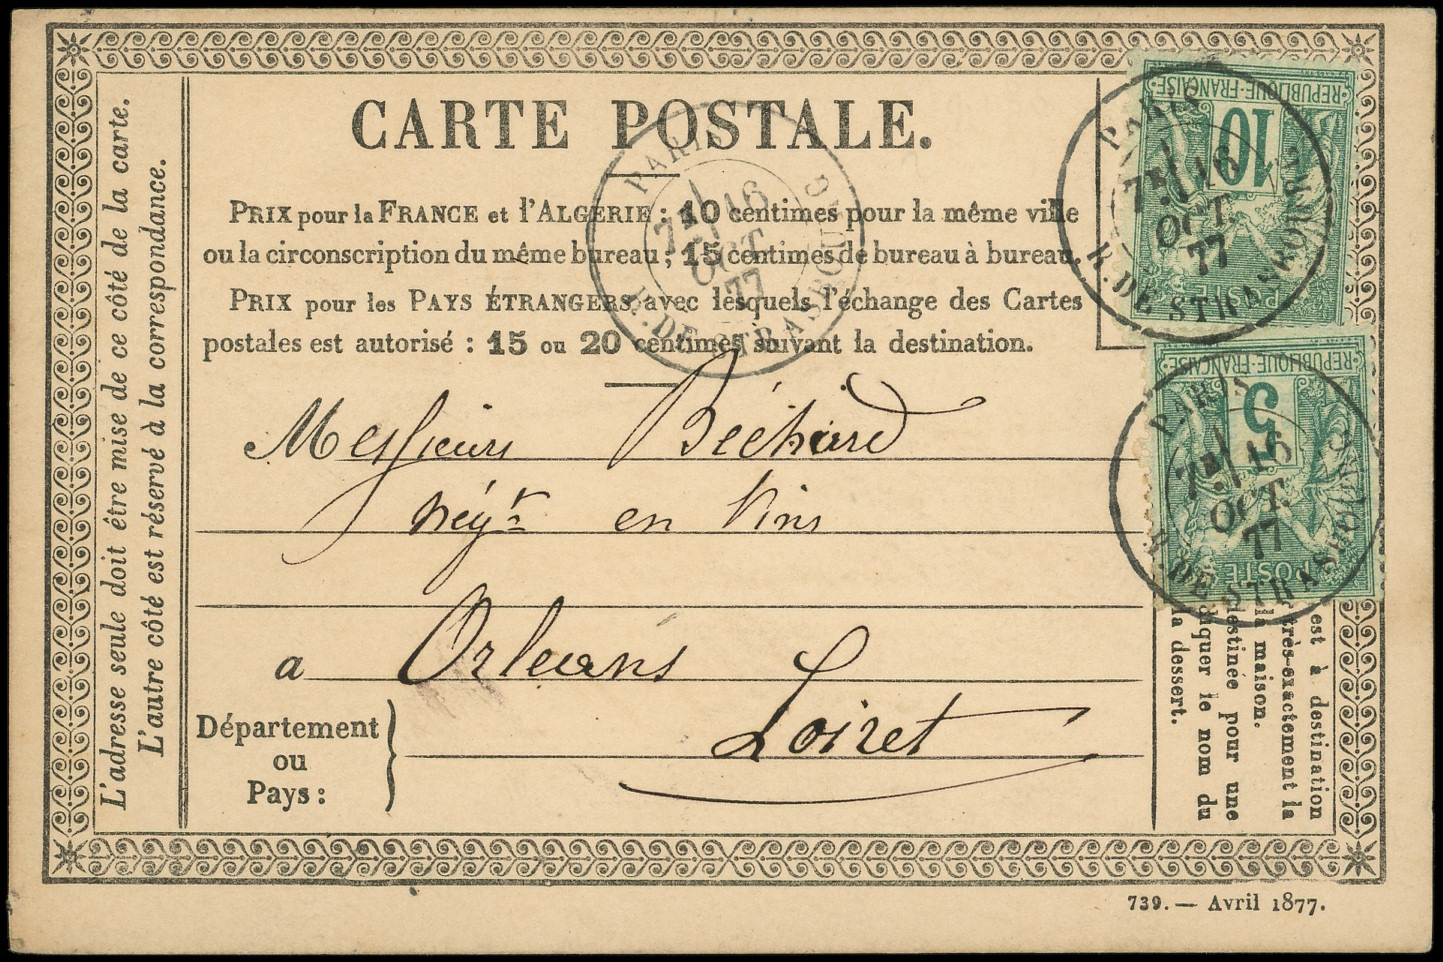 CARTE POSTALE.
PRIX pour la FRANCE et l'ALGÉRIE : 10 centimes pour la même ville
ou la circonscription du même bureau ; 15 centimes de bureau à bureau.
PRIX pour les PAYS ÉTRANGERS avec lesquels l'échange des Cartes
postales est autorisé : 15 ou 20 centimes suivant la destination.
Messieurs Béchard
négt en Vins
a Orleans
Département
ou
Pays :
Loiret
L'adresse seule doit être mise de ce côté de la carte.
L'autre côté est réservé à la correspondance.
PARIS
7E 16
OCT.
77
R. DE STRASBOURG
REPUBLIQUE FRANÇAISE
10
POSTE
PARIS
7E 16
OCT.
77
R. DE STRASBOURG
REPUBLIQUE FRANÇAISE
5
POSTE
PARIS
7E 16
OCT.
77
R. DE STRASBOURG
est à destination
très-exactement la
la maison.
destinée pour une
quer le nom du
la dessert.
739. — Avril 1877.